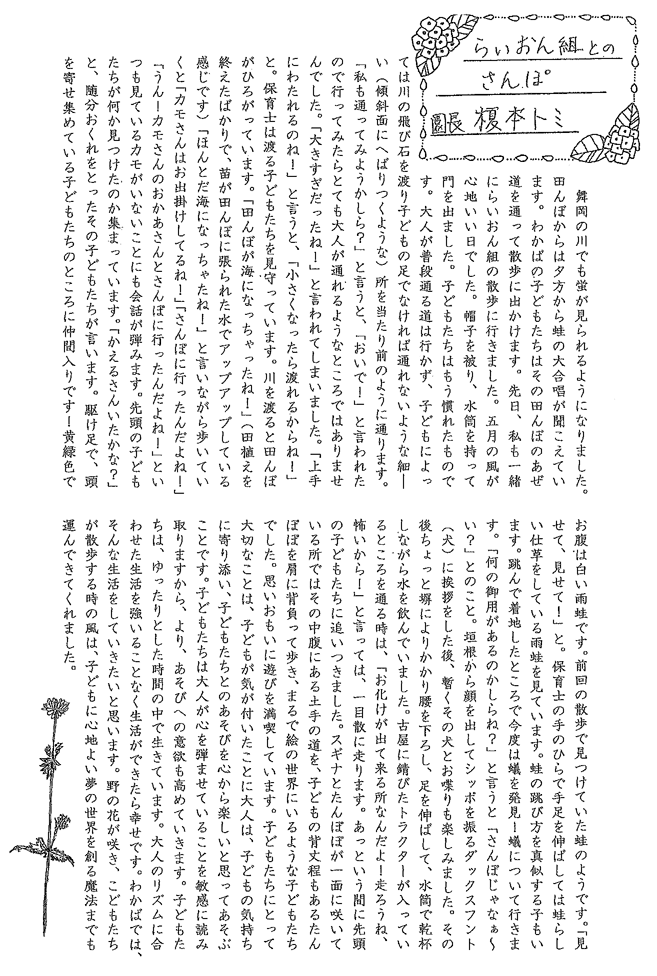 らいおん組との
さんぽ
園長 榎本トミ
舞岡の川でも蛍が見られるようになりました。
田んぼからは夕方から蛙の大合唱が聞こえてい
ます。わかばの子どもたちはその田んぼのあぜ
道を通って散歩に出かけます。先日、私も一緒
にらいおん組の散歩に行きました。五月の風が
心地いい日でした。帽子を被り、水筒を持って
門を出ました。子どもたちはもう慣れたもので
す。大人が普段通る道は行かず、子どもによっ
ては川の飛び石を渡り子どもの足でなければ通れないような細―
い（傾斜面にへばりつくような）所を当たり前のように通ります。
「私も通ってみようかしら？」と言うと、「おいで！」と言われた
ので行ってみたらとても大人が通れるようなところではありませ
んでした。「大きすぎだったね！」と言われてしまいました。「上手
にわたれるのね！」と言うと、「小さくなったら渡れるからね！」
と。保育士は渡る子どもたちを見守っています。川を渡ると田んぼ
がひろがっています。「田んぼが海になっちゃったね！」（田植えを
終えたばかりで、苗が田んぼに張られた水でアップアップしている
感じです）「ほんとだ海になっちゃたね！」と言いながら歩いてい
くと「カモさんはお出掛けしてるね！」「さんぽに行ったんだよね！」
「うん！カモさんのおかあさんとさんぽに行ったんだよね！」とい
つも見ているカモがいないことにも会話が弾みます。先頭の子ども
たちが何か見つけたのか集まっています。「かえるさんいたかな？」
と、随分おくれをとったその子どもたちが言います。駆け足で、頭
を寄せ集めている子どもたちのところに仲間入りです！黄緑色で
お腹は白い雨蛙です。前回の散歩で見つけていた蛙のようです。「見
せて、見せて！」と。保育士の手のひらで手足を伸ばしては蛙らし
い仕草をしている雨蛙を見ています。蛙の跳び方を真似する子もい
ます。跳んで着地したところで今度は蟻を発見！蟻について行きま
す。「何の御用があるのかしらね？」と言うと「さんぽじゃなぁ～
い？」とのこと。垣根から顔を出してシッポを振るダックスフント
（犬）に挨拶をした後、暫くその犬とお喋りも楽しみました。その
後ちょっと塀によりかかり腰を下ろし、足を伸ばして、水筒で乾杯
しながら水を飲んでいました。古屋に錆びたトラクターが入ってい
るところを通る時は、「お化けが出て来る所なんだよ！走ろうね、
怖いから！」と言っては、一目散に走ります。あっという間に先頭
の子どもたちに追いつきました。スギナとたんぽぽが一面に咲いて
いる所ではその中腹にある土手の道を、子どもの背丈程もあるたん
ぽぽを肩に背負って歩き、まるで絵の世界にいるような子どもたち
でした。思いおもいに遊びを満喫しています。子どもたちにとって
大切なことは、子どもが気が付いたことに大人は、子どもの気持ち
に寄り添い、子どもたちとのあそびを心から楽しいと思ってあそぶ
ことです。子どもたちは大人が心を弾ませていることを敏感に読み
取りますから、より、あそびへの意欲も高めていきます。子どもた
ちは、ゆったりとした時間の中で生きています。大人のリズムに合
わせた生活を強いることなく生活ができたら幸せです。わかばでは、
そんな生活をしていきたいと思います。野の花が咲き、こどもたち
が散歩する時の風は、子どもに心地よい夢の世界を創る魔法までも
運んできてくれました。